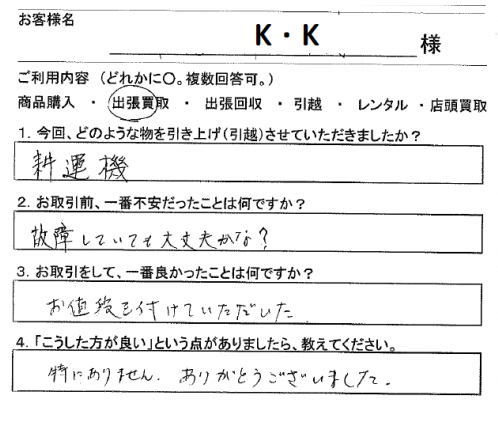 お客様名
K・K 様
ご利用内容 (どれかに○。複数回答可。)
商品購入 ・ 出張買取 ・ 出張回収 ・ 引越 ・ レンタル ・店頭買取
1. 今回、どのような物を引き上げ(引越)させていただきましたか?
耕運機
2. お取引前、一番不安だったことは何ですか?
故障していても大丈夫かな?
3. お取引をして、一番良かったことは何ですか?
お値段を付けていただいた
4. 「こうした方が良い」という点がありましたら、教えてください。
特にありません. ありがとうございました.